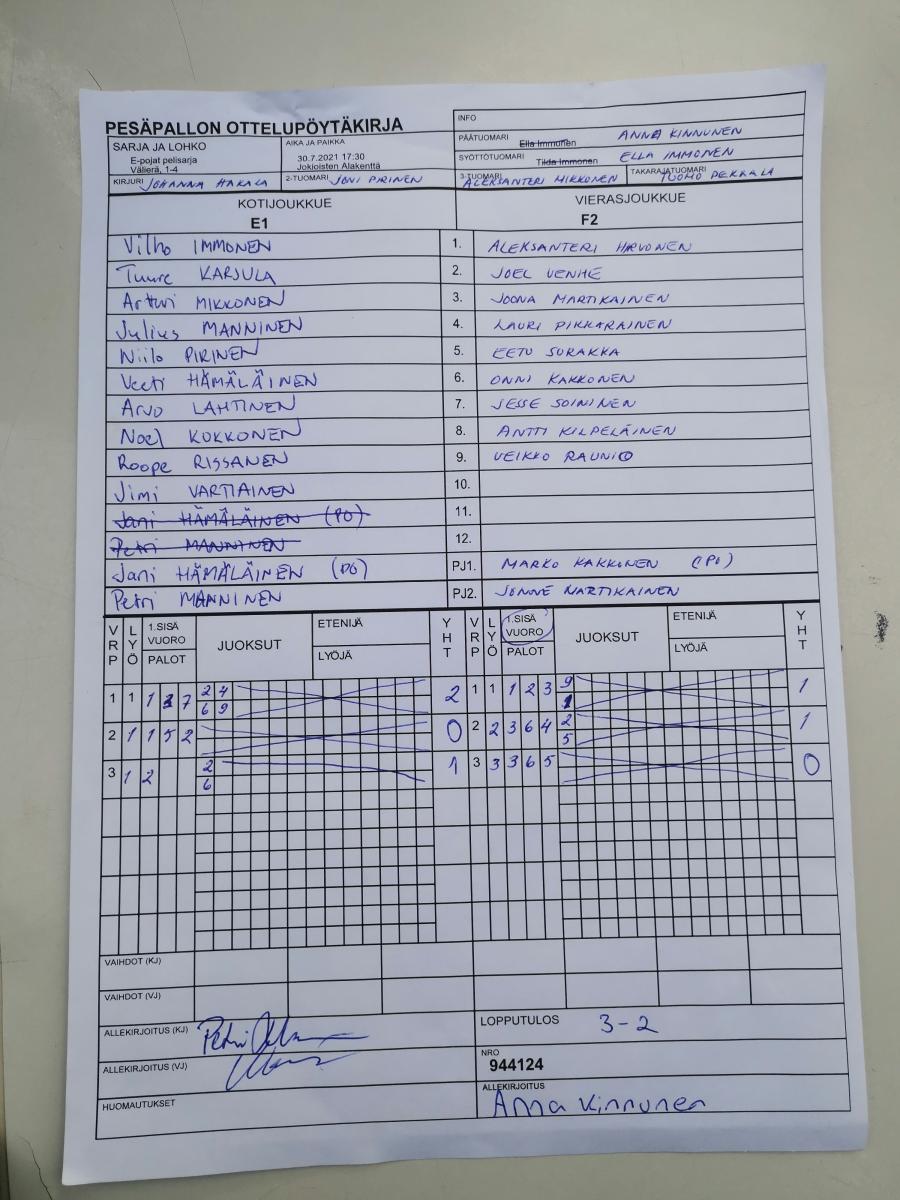 PESÄPALLON OTTELUPÖYTÄKIRJA
INFO
SARJA JA LOHKO
E-pojat pelisarja
Välierä, 1-4
AIKA JA PAIKKA
30.7.2021 17:30
Jokioisten Alakenttä
PÄÄTUOMARI Ella Immonen ANNA KINNUNEN
SYÖTTÖTUOMARI Tilda Immonen ELLA IMMONEN
KIRJURI JOHANNA HAKALA
2-TUOMARI JONI PIRINEN
3-TUOMARI ALEKSANTERI MIKKONEN
TAKARAJATUOMARI TUOMO PEKKALA
KOTIJOUKKUE
E1
VIERASJOUKKUE
F2
Vilho IMMONEN 1. ALEKSANTERI HARVONEN
Tuure KARJULA 2. JOEL VENHE
Artturi MIKKONEN 3. JOONA MARTIKAINEN
Julius MANNINEN 4. LAURI PIKKARAINEN
Niilo PIRINEN 5. EETU SURAKKA
Veeti HÄMÄLÄINEN 6. ONNI KAKKONEN
Arvo LAHTINEN 7. JESSE SOININEN
Noel KOKKONEN 8. ANTTI KILPELÄINEN
Roope RISSANEN 9. VEIKKO RAUNIO
Jimi VARTIAINEN 10.
Jani HÄMÄLÄINEN (PO) 11.
Petri MANNINEN 12.
Jani HÄMÄLÄINEN (PO) PJ1. MARKO KAKKONEN (PO)
Petri MANNINEN PJ2. JONNE MARTIKAINEN
VRP LYÖ 1.SISÄ VUORO PALOT JUOKSUT ETENIJÄ LYÖJÄ YHT VRP LYÖ 1.SISÄ VUORO PALOT JUOKSUT ETENIJÄ LYÖJÄ YHT
1 1 1 3 7 2 4 2 1 1 1 2 3 9 1
6 9 1
2 1 1 5 2 0 2 2 3 6 4 2 1
5
3 1 2 2 1 3 3 3 6 5 0
6
VAIHDOT (KJ)
VAIHDOT (VJ)
ALLEKIRJOITUS (KJ) Petri
LOPPUTULOS 3-2
ALLEKIRJOITUS (VJ)
NRO
944124
HUOMAUTUKSET
ALLEKIRJOITUS
Anna Kinnunen